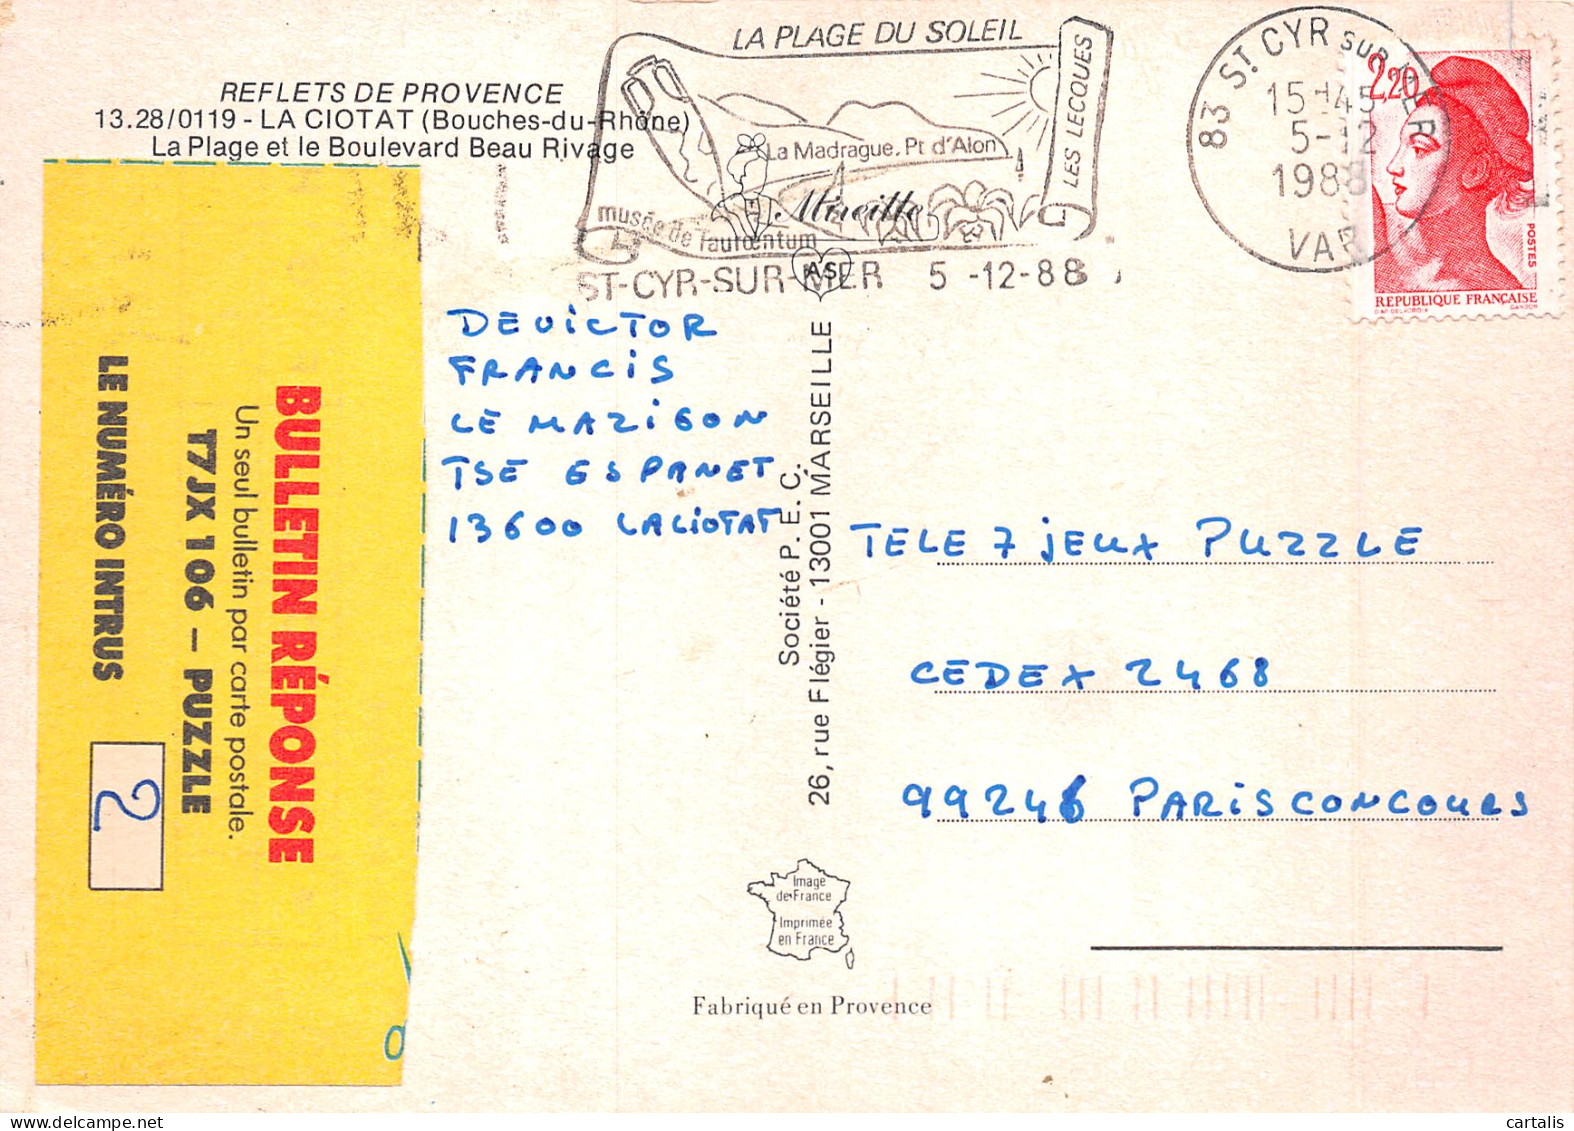 REFLETS DE PROVENCE
13.28/0119 - LA CIOTAT (Bouches-du-Rhône)
La Plage et le Boulevard Beau Rivage
LA PLAGE DU SOLEIL
La Madrague, Pt d'Alon
LES LECQUES
musée de Tauroentum
Mireille
AS
ST-CYR-SUR-MER 5 -12-88
83 ST CYR SUR MER
15H45
5-12
1988
VAR
2,20
POSTES
REPUBLIQUE FRANÇAISE
D'AP. DELACROIX GANDON
BULLETIN RÉPONSE
Un seul bulletin par carte postale.
T7JX 106 – PUZZLE
LE NUMÉRO INTRUS
2
DEVICTOR
FRANCIS
LE MAZIGON
TSE ESPANET
13600 LACIOTAT
Société P. E. C.
26, rue Flégier - 13001 MARSEILLE
TELE 7 JEUX PUZZLE
CEDEX 2468
99246 PARIS CONCOURS
Image
de France
Imprimée
en France
Fabriqué en Provence
cartalis